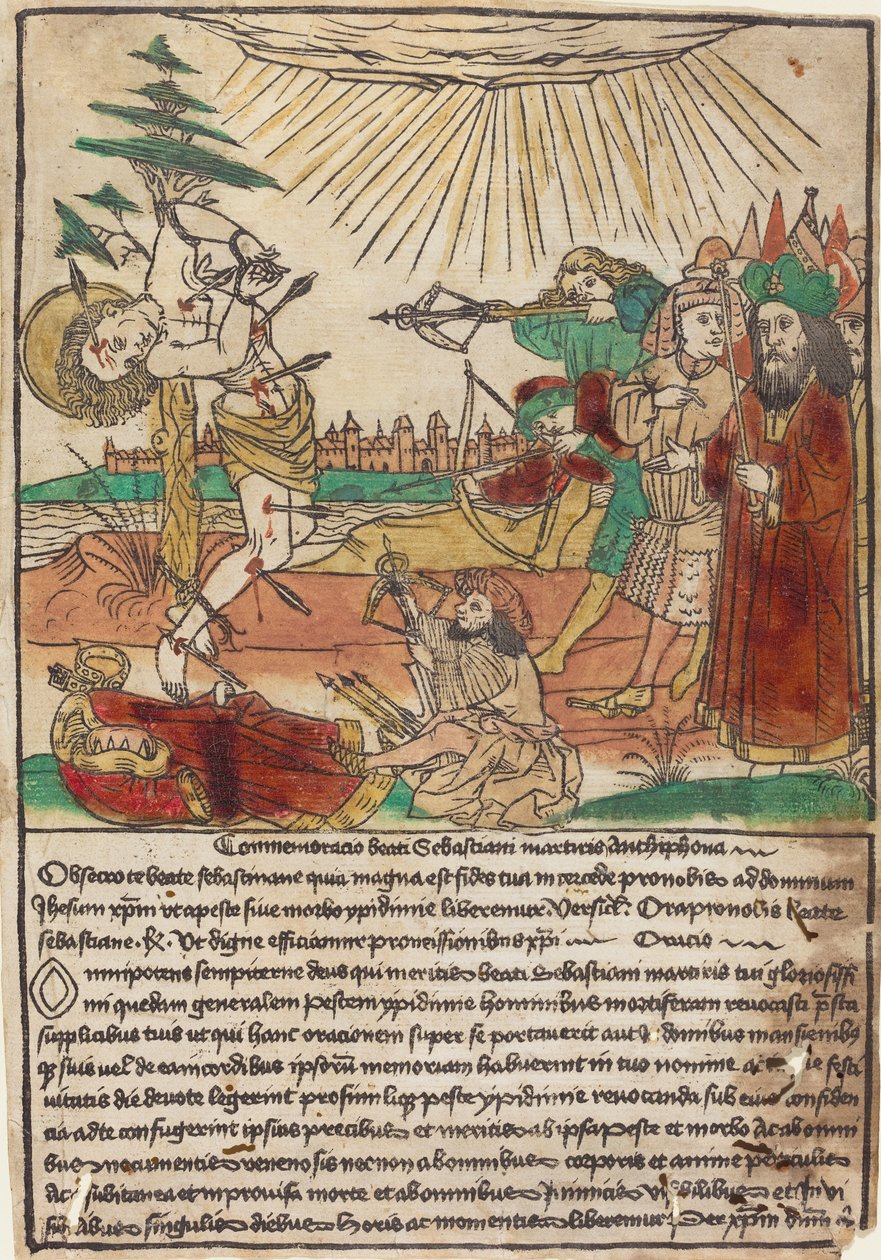 Commemoracio beati Sebastiani martiris Anthiphona
Obsecro te beate sebastinane quia magna est fides tua intercede pro nobis ad dominum
Jhesum xp̄m vt a peste siue morbo ypidimie liberemur. Versicl: Ora pro nobis beate
sebastiane. ℞. Ut digne efficiamur promissionibus xp̄i Oracio
Omnipotens sempiterne deus qui meritis beati Sebastiani martiris tui gloriosissi
mi quedam generalem pestem ypidimie hominibus mortiferam reuocasti p̄sta
supplicibus tuis ut qui hanc oracionem super se portauerit aut domibus mansionibꝫ
qꝫ suis vel de ea in cordibus ipsorū memoriam habuerint in tuo nomine festi
uitatis die deuote legerint profiml qꝫ peste ypidimie reuocanda sub eius confiden
cia ad te confugerint ipsius precibus et meritis ab ipsa peste et morbo Ac ab omni
bus nocumentis venenosis necnon ab omnibus corporis et anime periculis
Ac subitanea et inprouisa morte et ab omnibus Inimicis visibilibus et In vi
sibilibus singulis diebus Horis ac momentis liberemur Per xp̄m